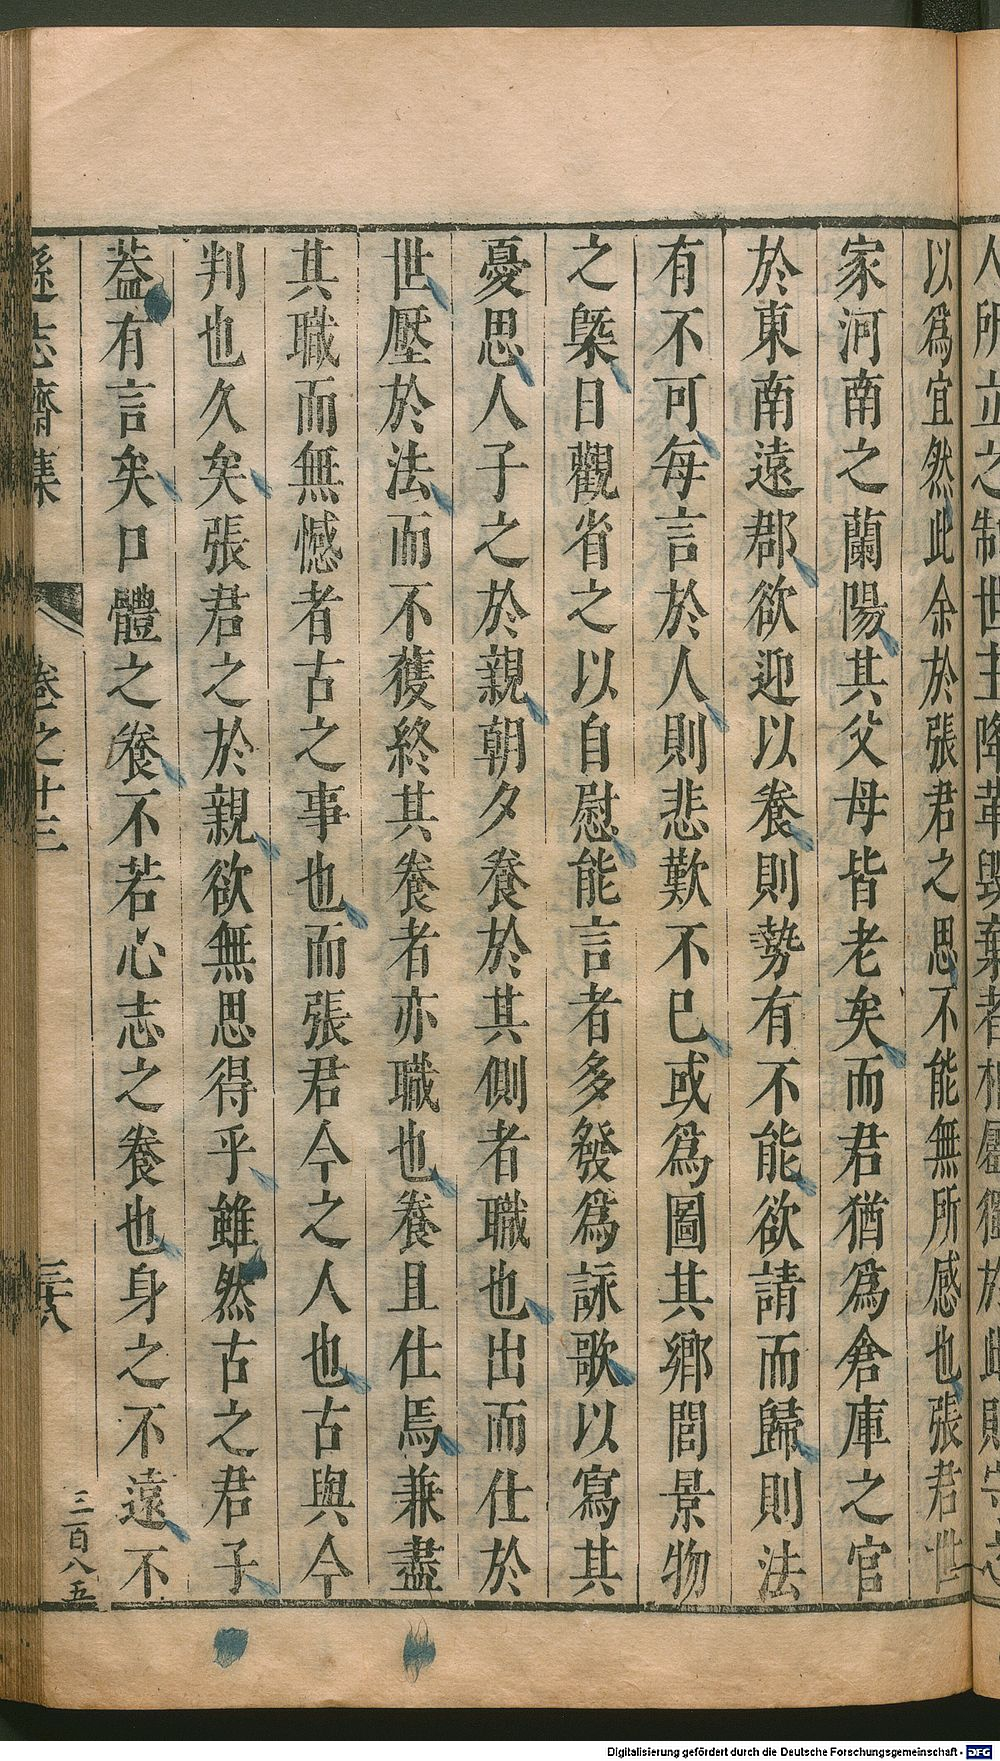 人所立之制世主降革毀棄者相屬獨於此則
以爲宜然此余於張君之思不能無所感也張君世
家河南之蘭陽其父母皆老矣而君猶爲倉庫之官
於東南遠郡欲迎以養則勢有不能欲請而歸則法
有不可每言於人則悲歎不已或爲圖其鄉閭景物
之槩日觀省之以自慰能言者多發爲詠歌以寫其
憂思人子之於親朝夕養於其側者職也出而仕於
世壓於法而不獲終其養者亦職也養且仕焉兼盡
其職而無憾者古之事也而張君今之人也古與今
判也久矣張君之於親欲無思得乎雖然古之君子
葢有言矣口體之養不若心志之養也身之不遠不
遜志齋集
卷之十三
三百八五
Digitalisierung gefördert durch die Deutsche Forschungsgemeinschaft - DFG